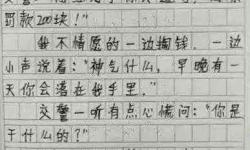 罚款200块！”
我不情愿的一边掏钱，一边
小声说着：“神气什么，早晚有一
天你会落在我手里．”
交警一听有点心慌问：“你是
干什么的？”